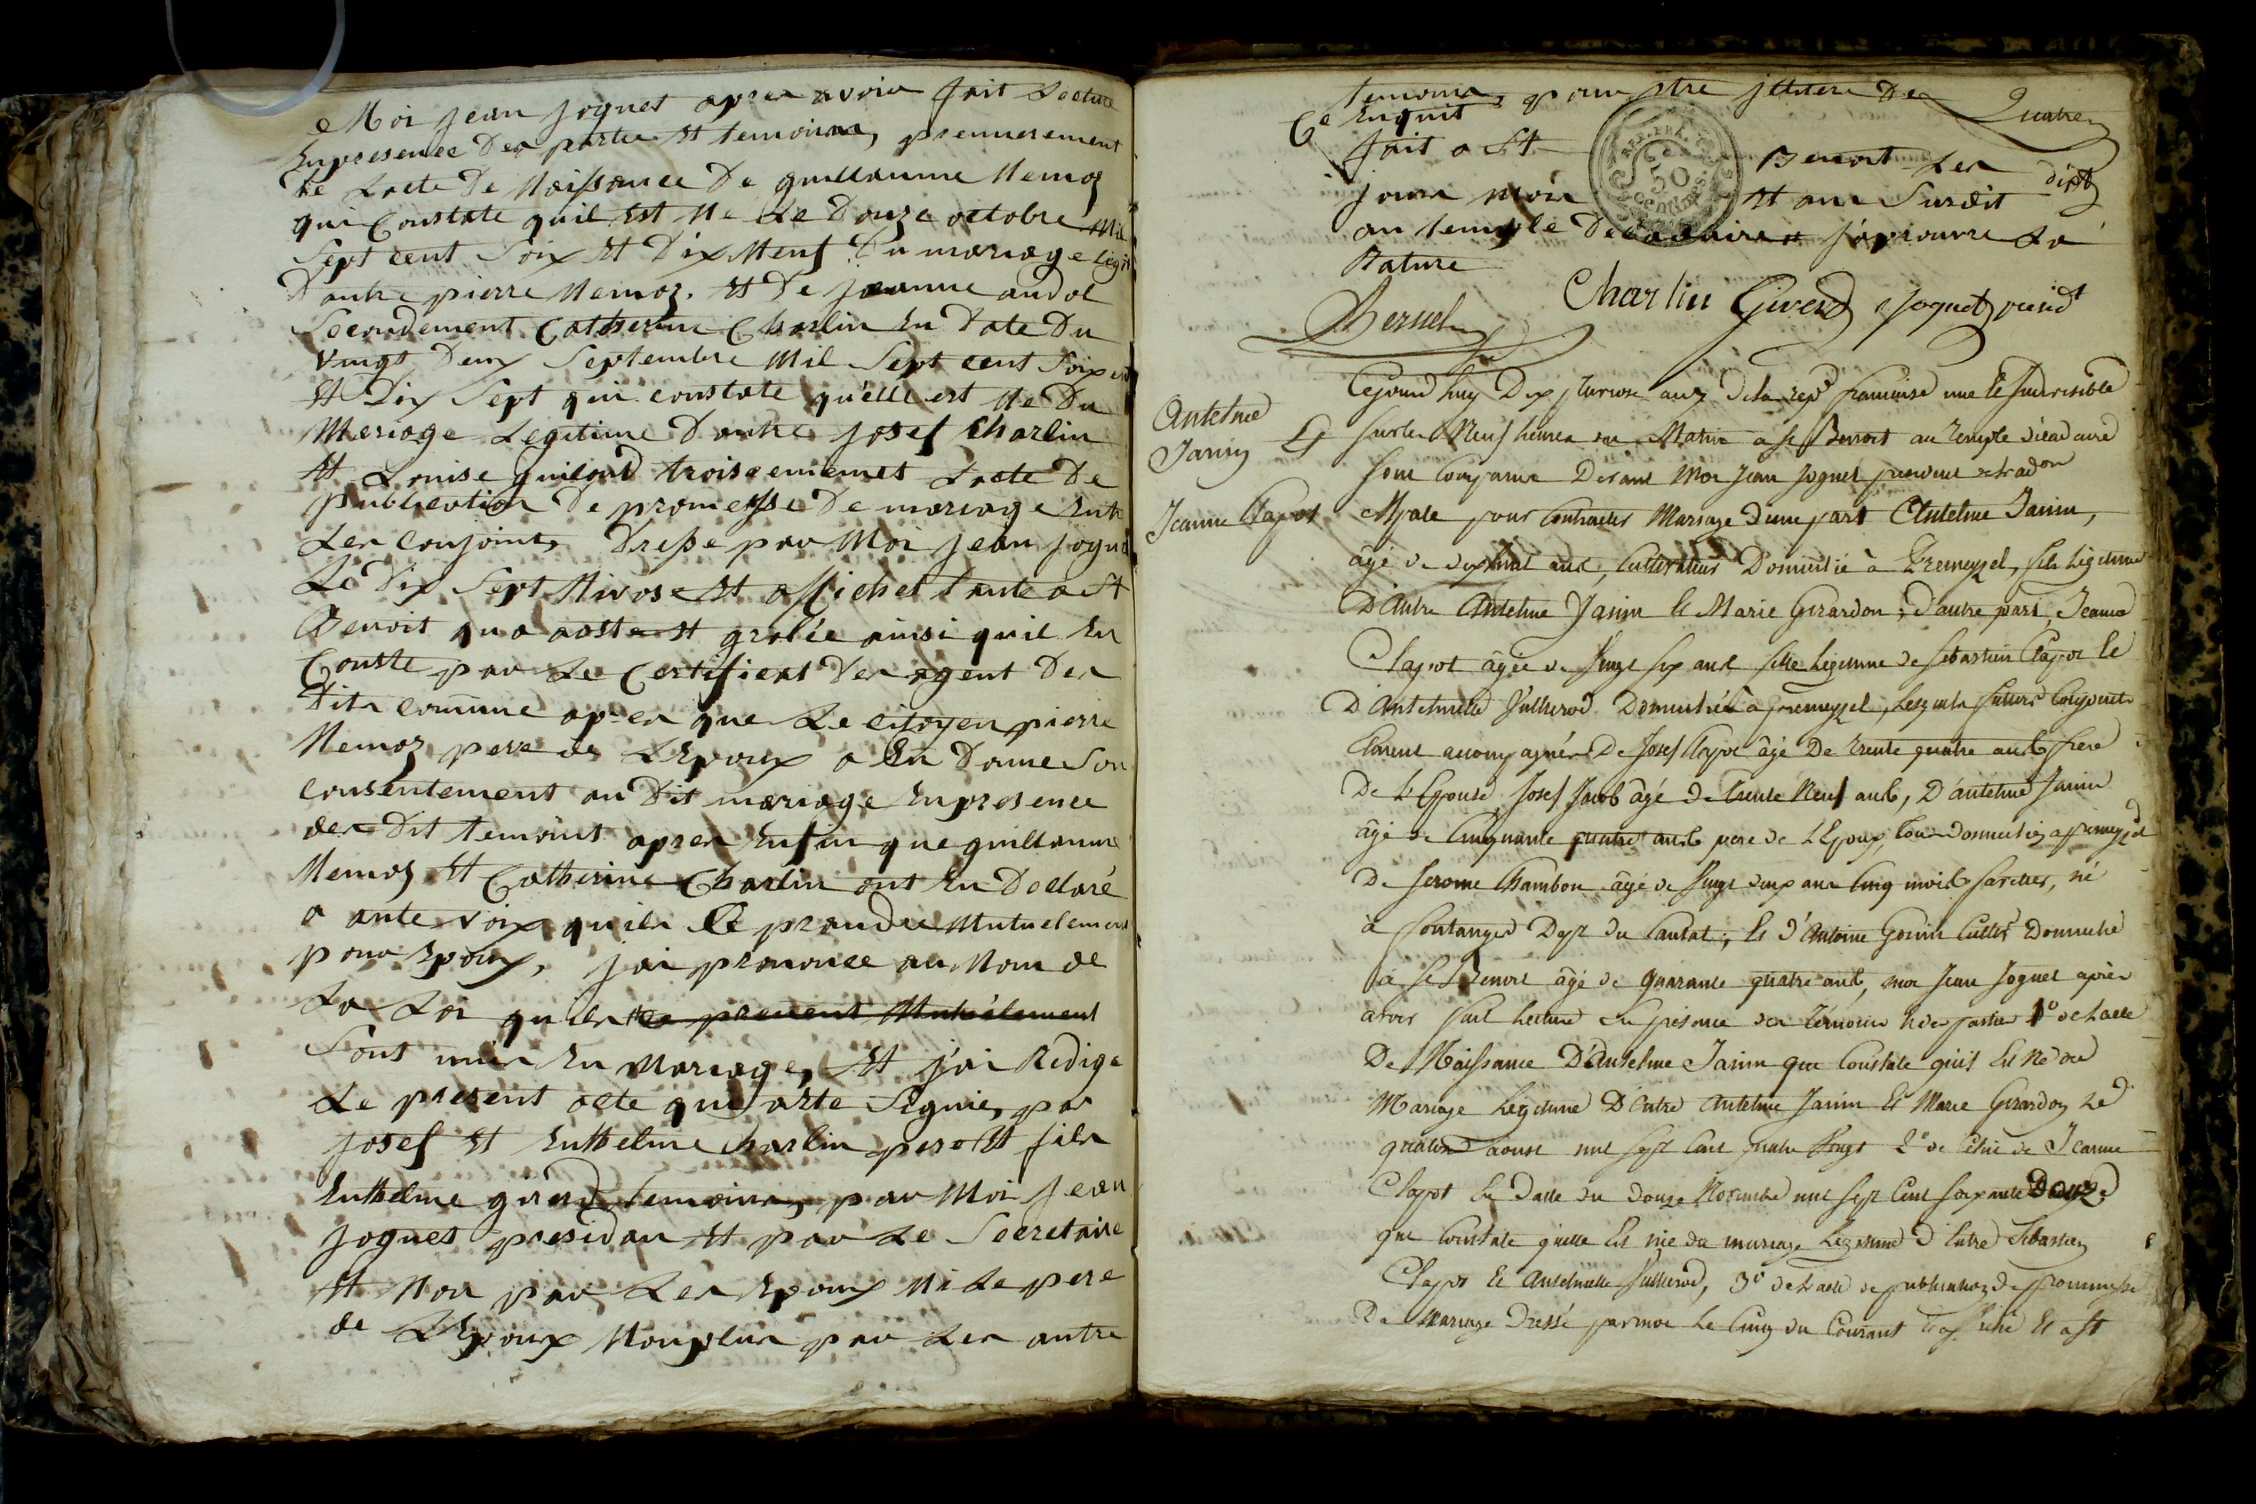 Moi jean joguet apres avoir fait Lecture
En presence Des partie Et temoins, premierement
De Lacte De Naissance De guillaume Nemoz
qui Constate quil Est Ne Le Douze octobre Mil
Sept cent Soix Et Dix Neuf Du mariage Legit
D'antre pierre Nemoz. Et De jeanne andol
Secondement Catherine Charlin En Date Du
vingt Deux Septembre Mil Sept cent Soix
Et Dix Sept qui constate qu'elle est Ne Du
Mariage Legitime D'antre josef Charlin
Et Louise troisiemement Lacte De
publication De promesse De mariage Entre
Les conjoints Dresse par Moi jean joguet
Le Dix Sept Nivose Et affichet tante a St
Benoit qu a aoste Et grolée ainsi quil En
Conste par Le Certificat Des agent Des
Dits comune apres que Le citoyen pierre
Nemoz pere de L'Epoux a En Donne Son
consentement au Dit mariage En presence
des Dit temoins apres Enfin que guillaume
Nemoz Et Catherine Charlin ont En Declaré
a aute voix quils Se prandre Mutuelement
pour Epoux, j'ai prononce au Nom de
La Loi qu'ils se prenent Mutuélement
Sont unis En Mariage, Et j'ai Redige
Le present acte qui a Ete Signie, par
josef Et Enthelme Charlin pere Et fils
Enthelme girerd temoins, par Moi jean
joguet presidan Et par Le Secretaire
Et Non par Les Epoux Ni Le pere
de L'Epoux Nonplus par Les autre
temoins, pour Etre De
Ce Enquit Quatre
fait a St Benoit Les dipt
jour mois Et an Surdit
au temple Decadaire j'aprouvre La
Rature
Charlin Girerd Joguet presidt
Antelme
Janin Et
Jeanne Clapot
Cejourd'huy Dix pluviose an 7 de la repe francaise une & Indivisible
Sur les Neuf heures du Matin a St Benoit au Temple décadaire
Sont Comparus Devant Moi Jean Joguet president de Ladon
Mpale pour Contracter Mariage D'une part Antelme Janin,
âgé de dixhuit ans, Cultivateur Domicilié à Premeyzel, fils Légitime
D'Entre Antelme Janin & Marie Girardon; d'autre part, Jeanne
Clapot âgée de Vingt six ans fille Légitime de Sébastien Clapot &
D'Antelmette Domiciliée à Premeyzel, Lesquels futurs Conjoints
Etoient accompagnés De Josef Clapot âgé De Trente quatre ans frere
De L'Epouse, Josef Jacob âgé de trente Neuf ans, D'antelme Janin
âgé de Cinquante quatre ans pere de L'Epoux, Tous domicilies a Premeyzel
De Jerome Chambon âgé de Vingt deux ans Cinq mois Sarclier, né
à Fontanges Dept du Cantal; & d'Antoine Gonin Cultr Domicilié
à St Benoit âgé de Quarante quatre ans, moi Jean Joguet après
avoir fait Lecture En presence des Témoins & des parties 1° de Lacte
De Naissance D'Anselme Janin qui Constate qu'il Est Né du
Mariage Légitime D'Entre Antelme Janin & Marie Girardon Le
quatorze aoust mil sept Cent quatre Vingt 2° de Celui de Jeanne
Clapot En Date du douze Novembre mil sept Cent soixante Douze
qui Constate quelle Est née du mariage Légitime d'Entre Sébastien
Clapot & Anselmette, 3° de Lacte de publication de promesse
De Mariage Dressé par moi Le Cinq du Courant & a St